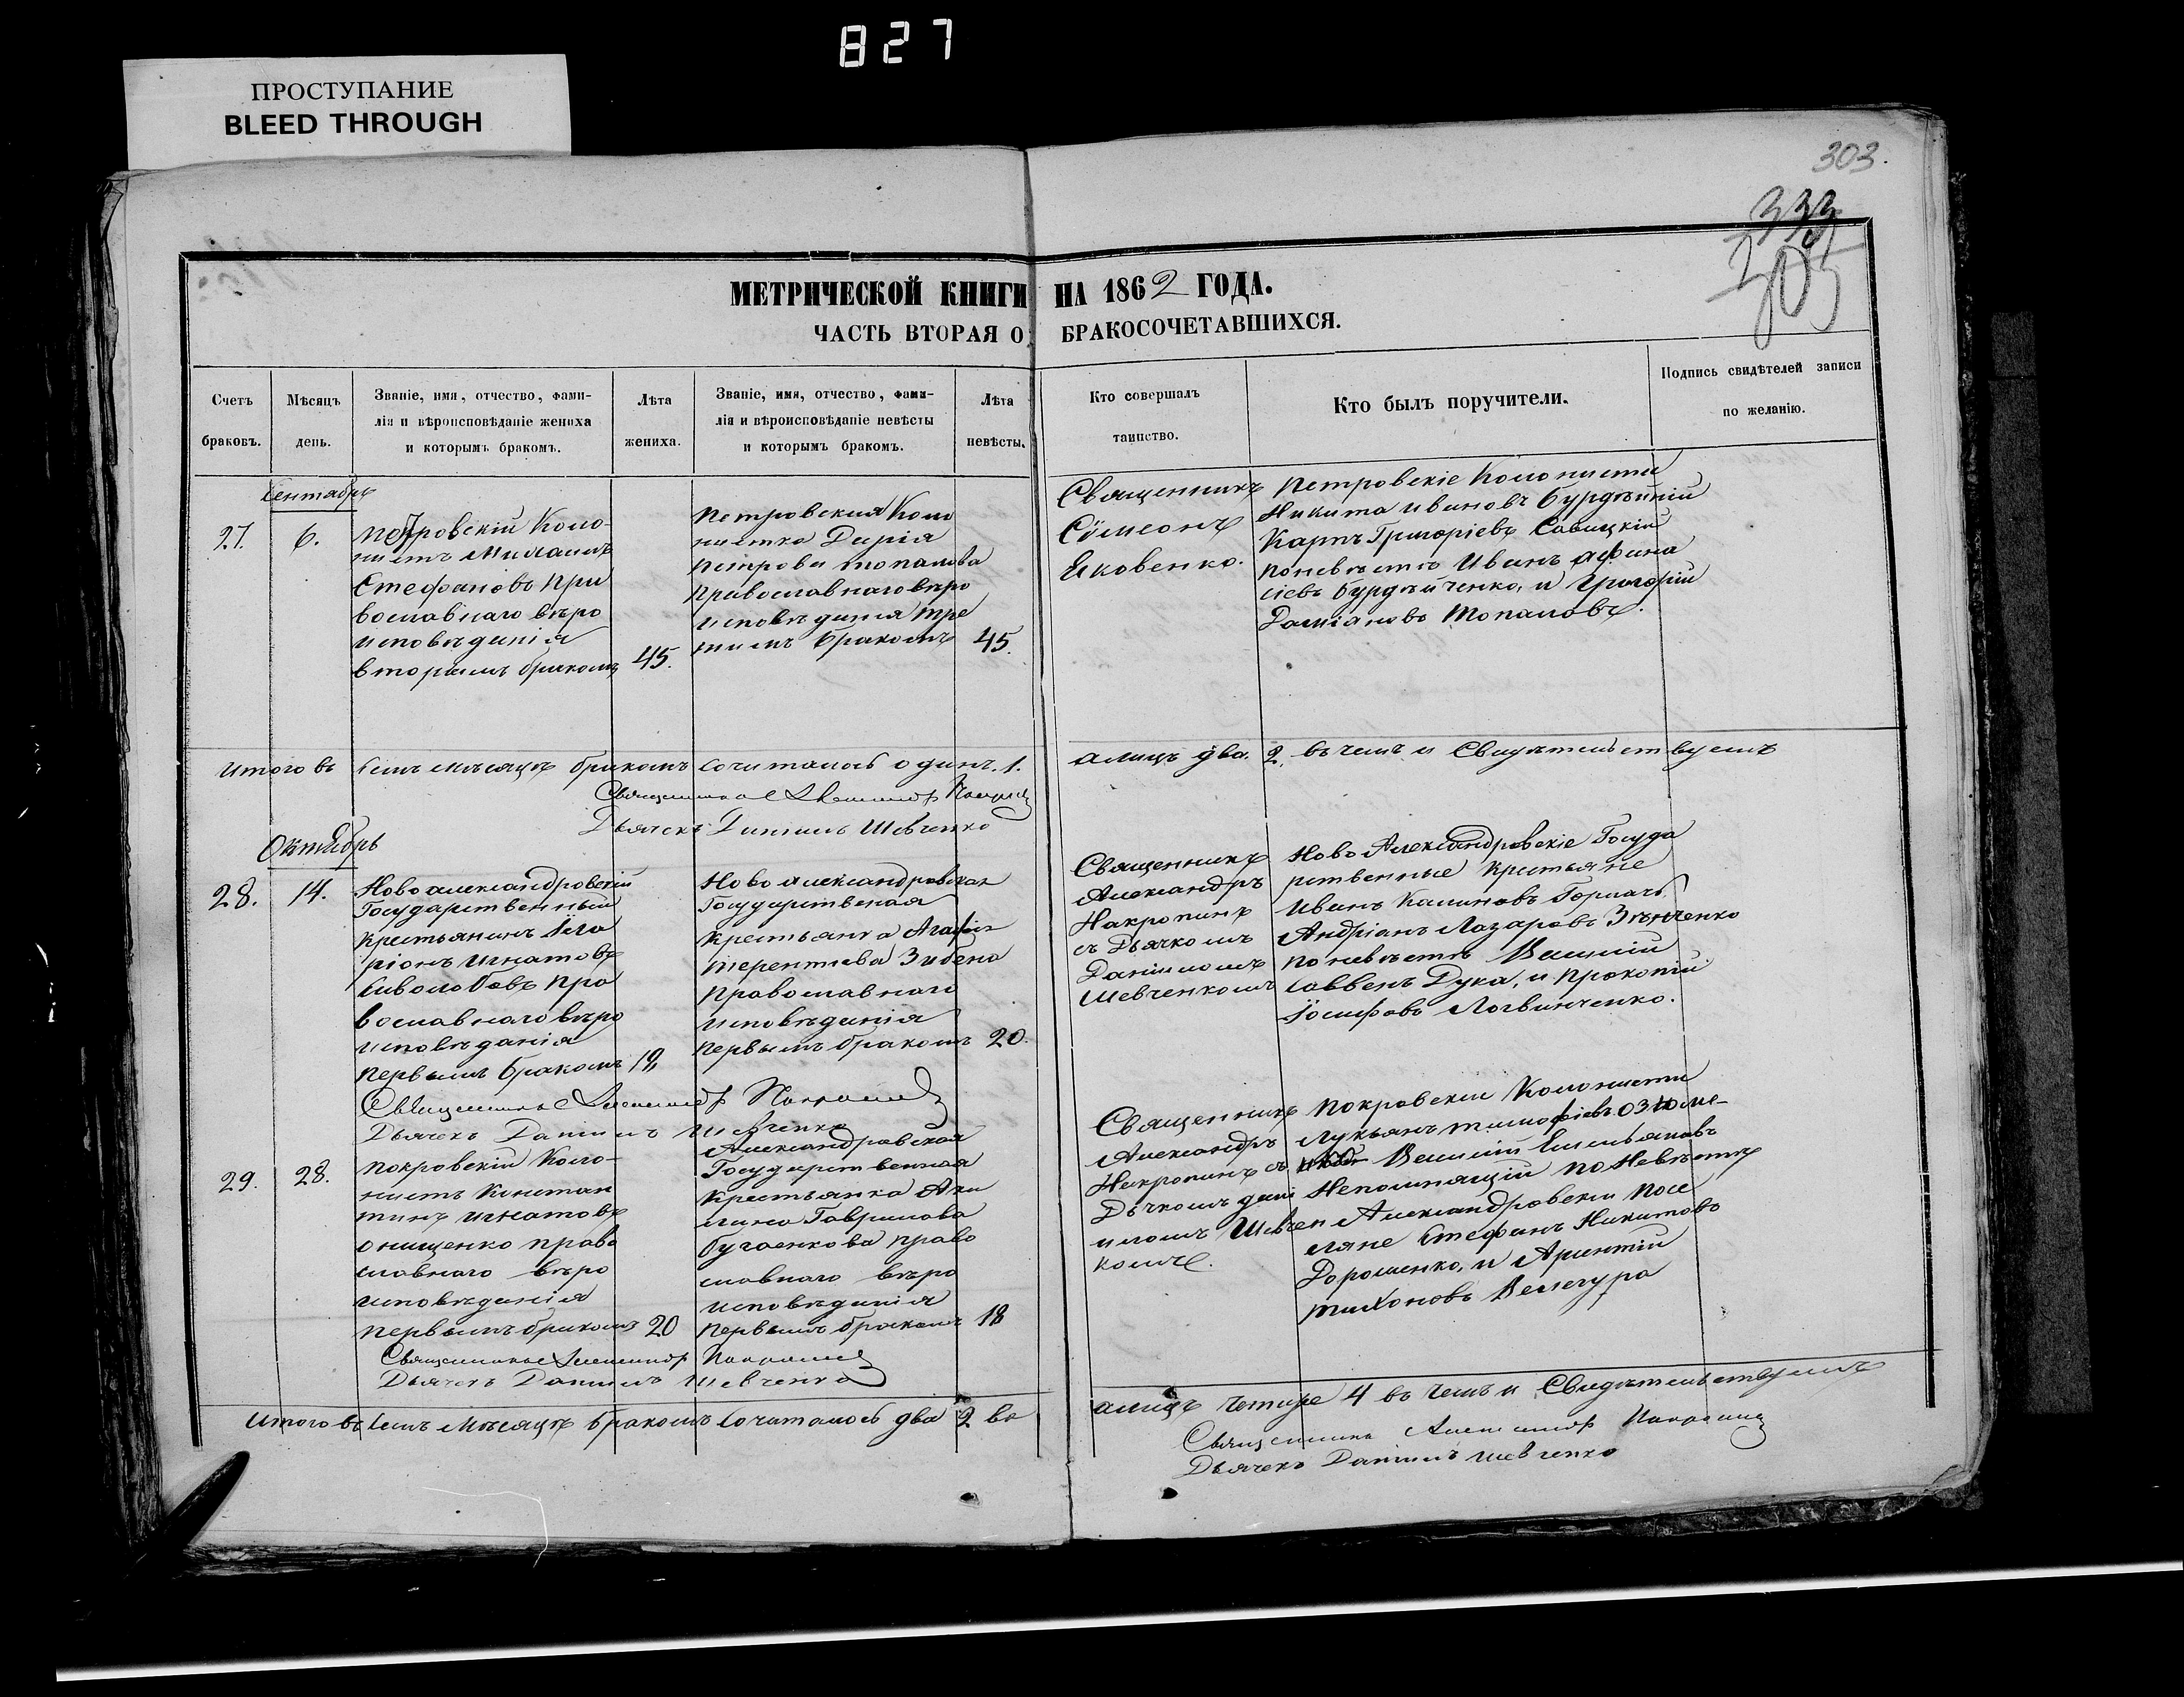 827
ПРОСТУПАНИЕ
BLEED THROUGH
303.
333
305
МЕТРИЧЕСКОЙ КНИГИ НА 1862 ГОДА.
ЧАСТЬ ВТОРАЯ О БРАКОСОЧЕТАВШИХСЯ.
Счетъ
браковъ.
Мѣсяцъ
день.
Званіе, имя, отчество, фами-
лія и вѣроисповѣданіе жениха
и которымъ бракомъ.
Лѣта
жениха.
Званіе, имя, отчество, фами-
лія и вѣроисповѣданіе невѣсты
и которымъ бракомъ.
Лѣта
невѣсты.
Кто совершалъ
таинство.
Кто былъ поручители.
Подпись свидѣтелей записи
по желанію.
Сентябрь
27.
6.
Петровскій Коло-
нистъ
Стефановъ пра
вославнаго вѣро
исповѣданія
вторымъ бракомъ
45.
Петровская Коло
нистка Дарія
Петрова Топалова
православнаго вѣро
исповѣданія тре
тимъ бракомъ
45.
Священникъ
Сѵмеонъ
Яковенко.
Петровскіе Колонисты
Никита Ивановъ Бурдѣйній
Карпъ Григоріевъ Савицкій
по невѣстѣ Иванъ Афана
сіевъ Бурдѣйченко, и Григорій
Даміановъ Топаловъ.
Итого въ семъ мѣсяцѣ бракомъ сочиталось одинъ. 1.
а лицъ два. 2. въ чемъ и Свидѣтельствуемъ
Священникъ Александръ
Дьячекъ Даніилъ Шевченко
Октябрь
28.
14.
Новоалександровскій
Государственный
крестьянинъ Іла
ріонъ Игнатовъ
пра
вославнаго вѣро
исповѣданія
первымъ бракомъ
19.
Новоалександровская
Государственая
крестьянка Агафія
Терентіева
православнаго
исповѣданія
первымъ бракомъ
20.
Священникъ
Александръ
Накропинъ
съ Дьячкомъ
Даніиломъ
Шевченкомъ
Ново Александровскіе Госуда
рственные крестьяне
Иванъ Калиновъ Горкачъ
Андріанъ Лазаровъ Зѣнченко
по невѣстѣ Василій
Саввенъ Дука, и Прокопій
Іосифовъ Логвинченко.
Священникъ Александръ
Дьячекъ Даніилъ Шевченко
29.
28.
Покровскій Коло-
нистъ Констан
тинъ Игнатовъ
Онищенко право
славнаго вѣро
исповѣданія
первымъ бракомъ
20
Александровская
Государственная
Крестьянка Аки
лина Гаврилова
Бугаенкова право
славнаго вѣро
исповѣданія
первымъ бракомъ
18
Священникъ
Александръ
Накропинъ съ
Дьчкомъ Дані
иломъ Шевчен
комъ.
Покровскіи Колонисты
Лукьянъ Тимофіевъ
Василій Емельяновъ
Непомнящій по Невѣстѣ
Александровскіи посе
ляне Стефанъ Никитовъ
Дорошенко, и Арнтій
Тихоновъ Велегура
Священникъ Александръ
Дьячекъ Даніилъ Шевченко
Итого въ семъ мѣсяцѣ бракомъ сочиталось два 2 во
а лицъ четыре 4 въ чемъ и Свидѣтельствуемъ
Священникъ Александръ
Дьячекъ Даніилъ Шевченко